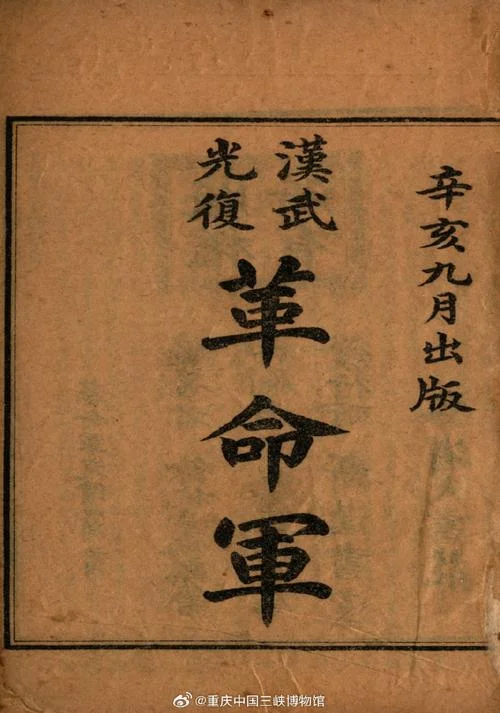 辛亥九月出版
漢武
光復
革命軍
@重庆中国三峡博物馆